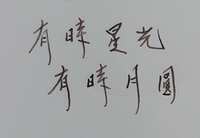 有時星光
有時月圓